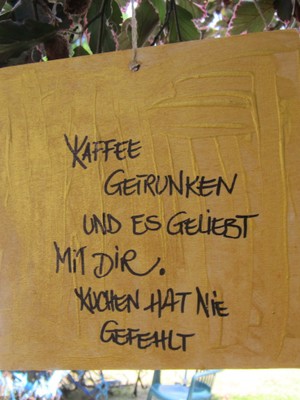 KAFFEE
GETRUNKEN
UND ES GELIEBT
MIT DIR.
KUCHEN HAT NIE
GEFEHLT